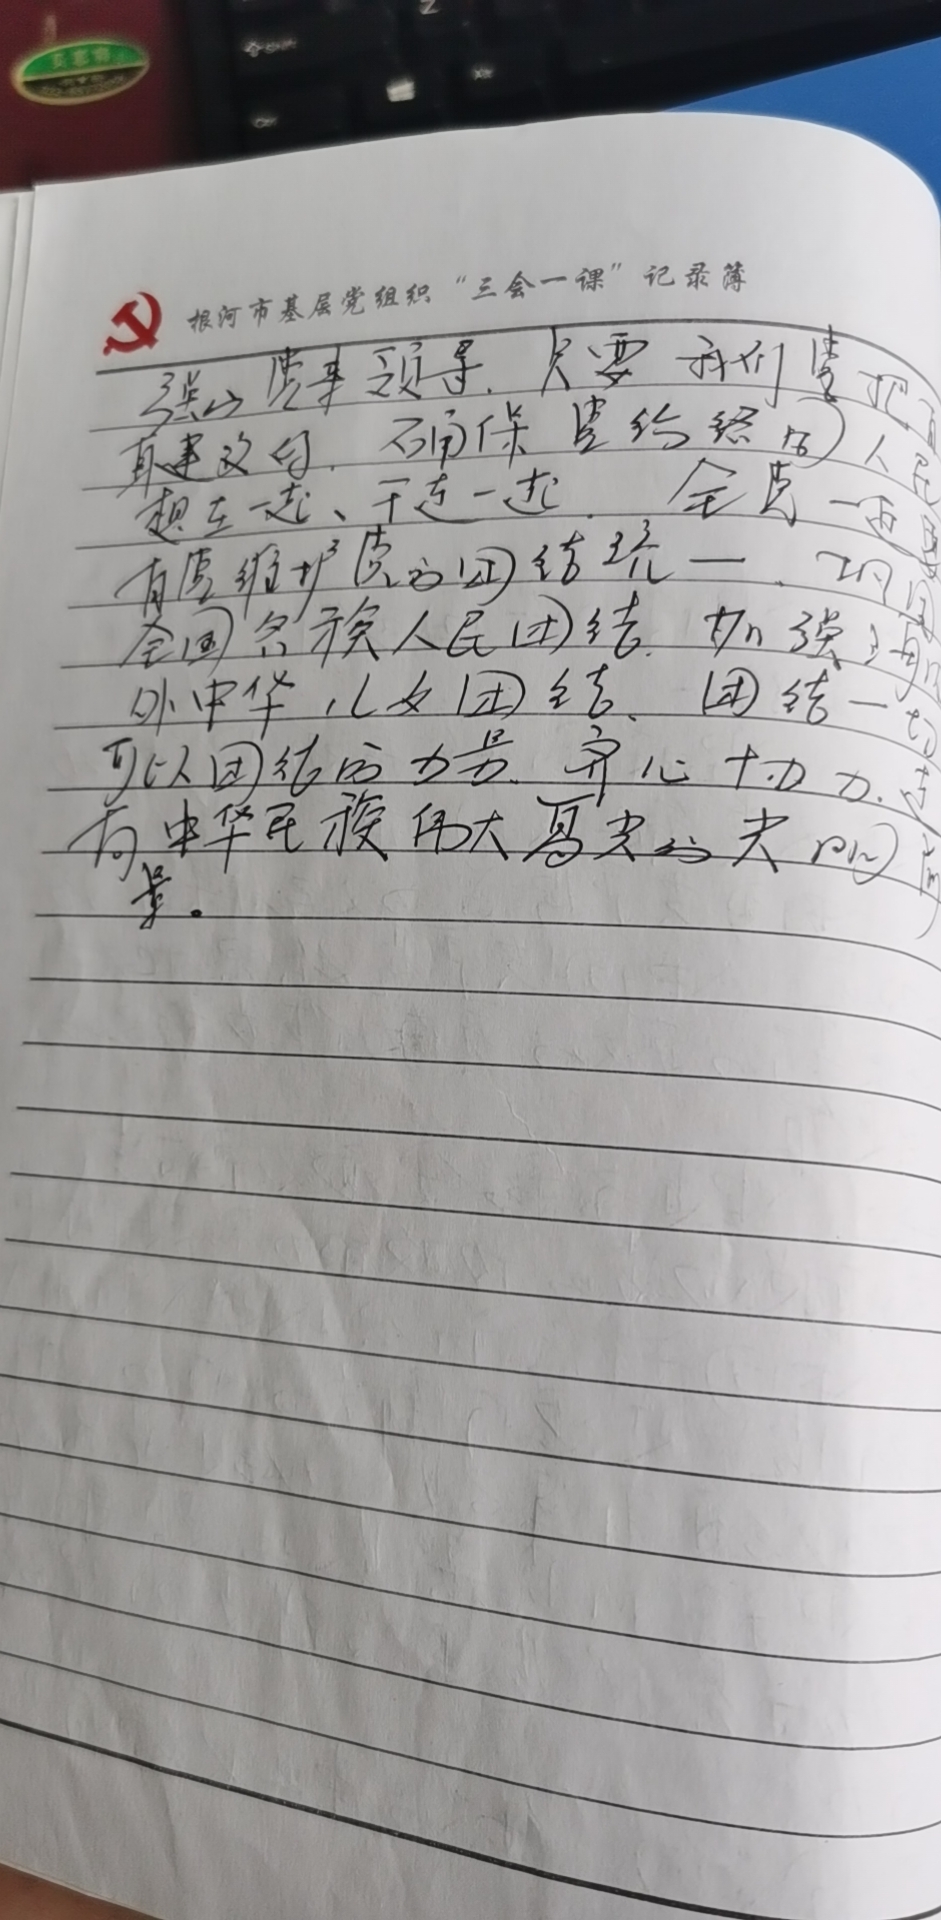 根河市基层党组织“三会一课”记录簿
强的党来领导。只要我们党把自
身建设好、确保党始终同人民
想在一起、干在一起
有党维护党的团结统一、巩固
全国各族人民团结、加强海内
外中华儿女团结、团结一切
可以团结的力量、齐心协力、走
向中华民族伟大复兴的光明前
景。